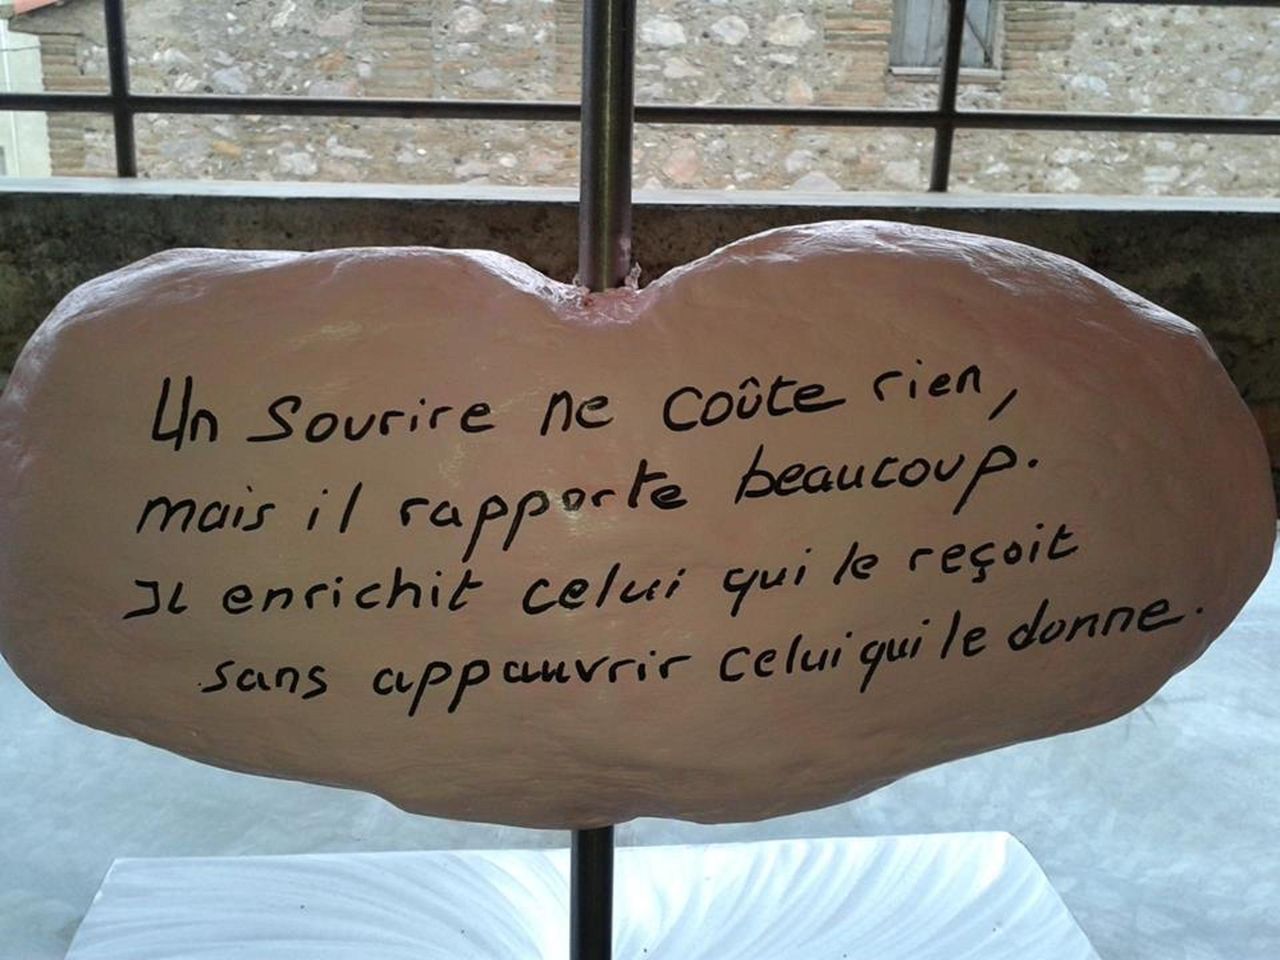 Un sourire ne coûte rien,
mais il rapporte beaucoup.
Il enrichit celui qui le reçoit
sans appauvrir celui qui le donne.